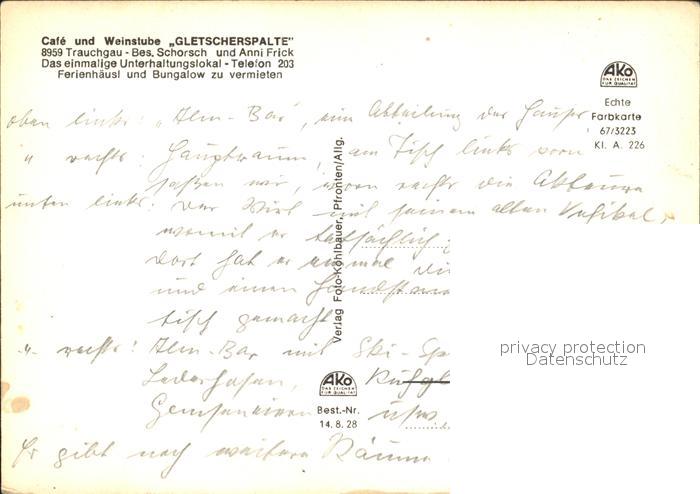 Café und Weinstube „GLETSCHERSPALTE"
8959 Trauchgau - Bes. Schorsch und Anni Frick
Das einmalige Unterhaltungslokal - Telefon 203
Ferienhäusl und Bungalow zu vermieten
AKO
DAS ZEICHEN
FÜR QUALITÄT
Echte
Farbkarte
67/3223
Kl. A. 226
oben links: „Alm-Bar", eine Abteilung des Hauses
" rechts: Hauptraum, am Tisch links vorn
saßen wir, vorn rechts die
unten links: Der Wirt mit seinem alten Vehikel,
womit er tatsächlich
dort hat er einmal
und einen
tisch gemacht
" rechts: Alm-Bar mit Ski-
Lederhosen,
usw
Es gibt noch weitere Räume
Verlag Foto-Kohlbauer, Pfronten/Allg.
AKO
DAS ZEICHEN
FÜR QUALITÄT
Best.-Nr.
14. 8. 28
privacy protection
Datenschutz